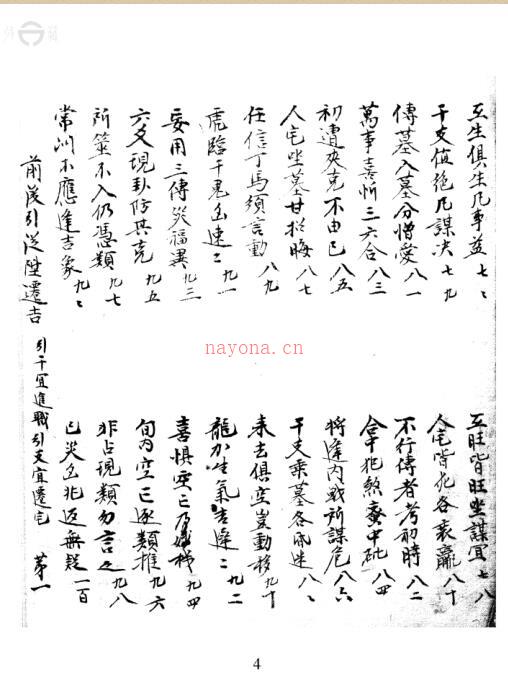 互生俱生凡事益 七〻
互旺皆旺坐謀宜 七八
干支值絶凡謀决 七九
人宅皆死各衰羸 八十
傳墓入墓分憎愛 八一
不行傳者考初時 八二
萬事喜忻三六合 八三
合中犯煞蜜中砒 八四
初遭夾克不由己 八五
將逢内戰所謀危 八六
人宅坐墓甘招晦 八七
干支乘墓各昏迷 八〻
任信丁馬須言動 八九
来去俱空豈動移 九十
虎臨干鬼凶速〻 九一
龍加生氣吉遲〻 九二
妄用三傳災福異 九三
喜惧空亡乃妙機 九四
六爻現卦防其克 九五
旬内空亡逐類推 九六
所筮不入仍憑類 九七
非占現類勿言之 九八
常問不應逢吉象 九〻
已災凶兆返無疑 一百
前後引從陞遷吉 引干宜進職引支宜遷宅 第一
nayona.cn
4